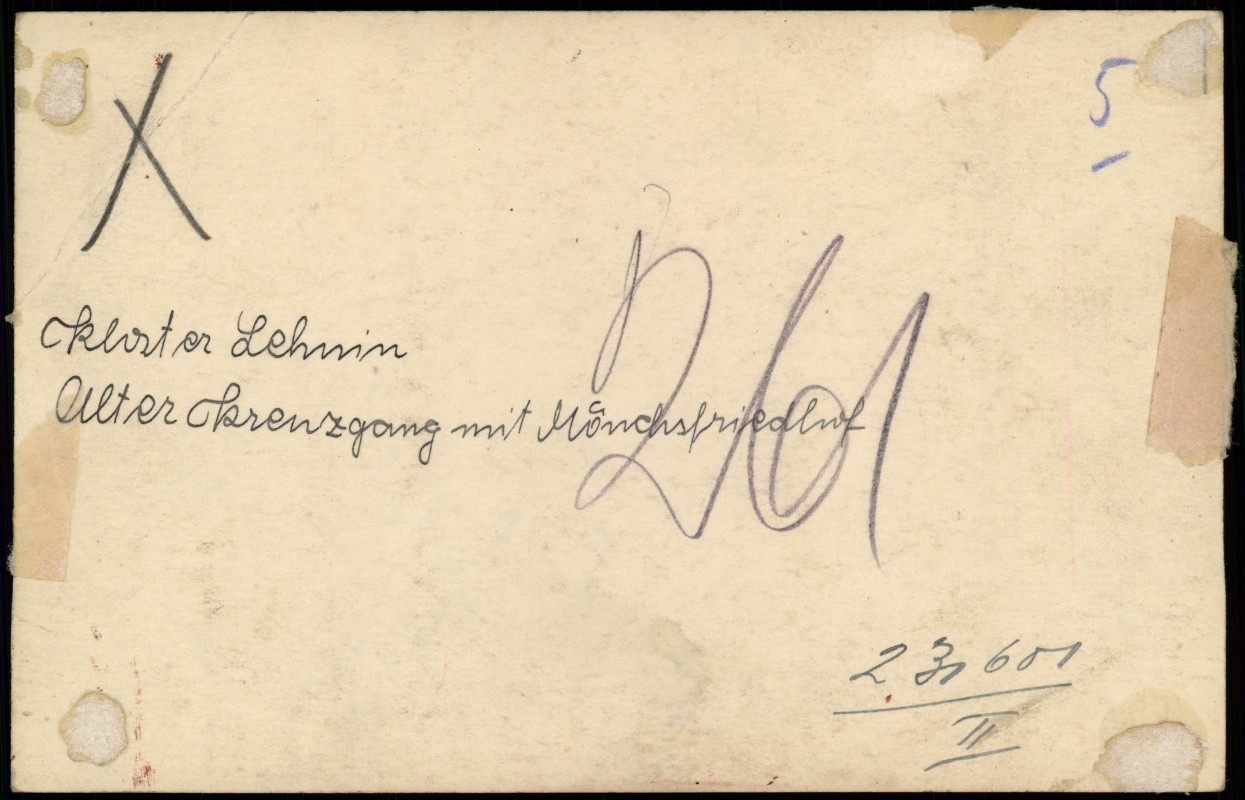 X
5
-
Kloster Lehnin
Alter Kreuzgang mit Mönchsfriedhof
261
23601
II